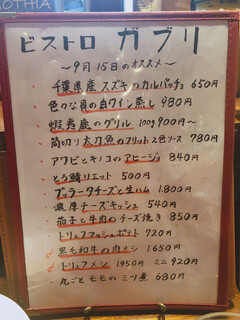 ROTHIA
ビストロ ガブリ
～9月15日のオススメ～
・千葉県産 スズキのカルパッチョ 650円
・色々な貝の白ワイン蒸し 980円
・蝦夷鹿のグリル 100g 900円〜
・筒切り太刀魚のフリット 2色ソース 780円
・アワビとキノコのアヒージョ 840円
・とろ鯖リエット 500円
・ブッラータチーズと生ハム 1800円
・濃厚チーズキッシュ 540円
・茄子と牛肉のチーズ焼き 850円
・トリュフマッシュポテト 720円
・黒毛和牛の肉メシ 1650円
・トリュフメシ 1450円 ミニ 920円
・丸ごとモモのミツ煮 680円